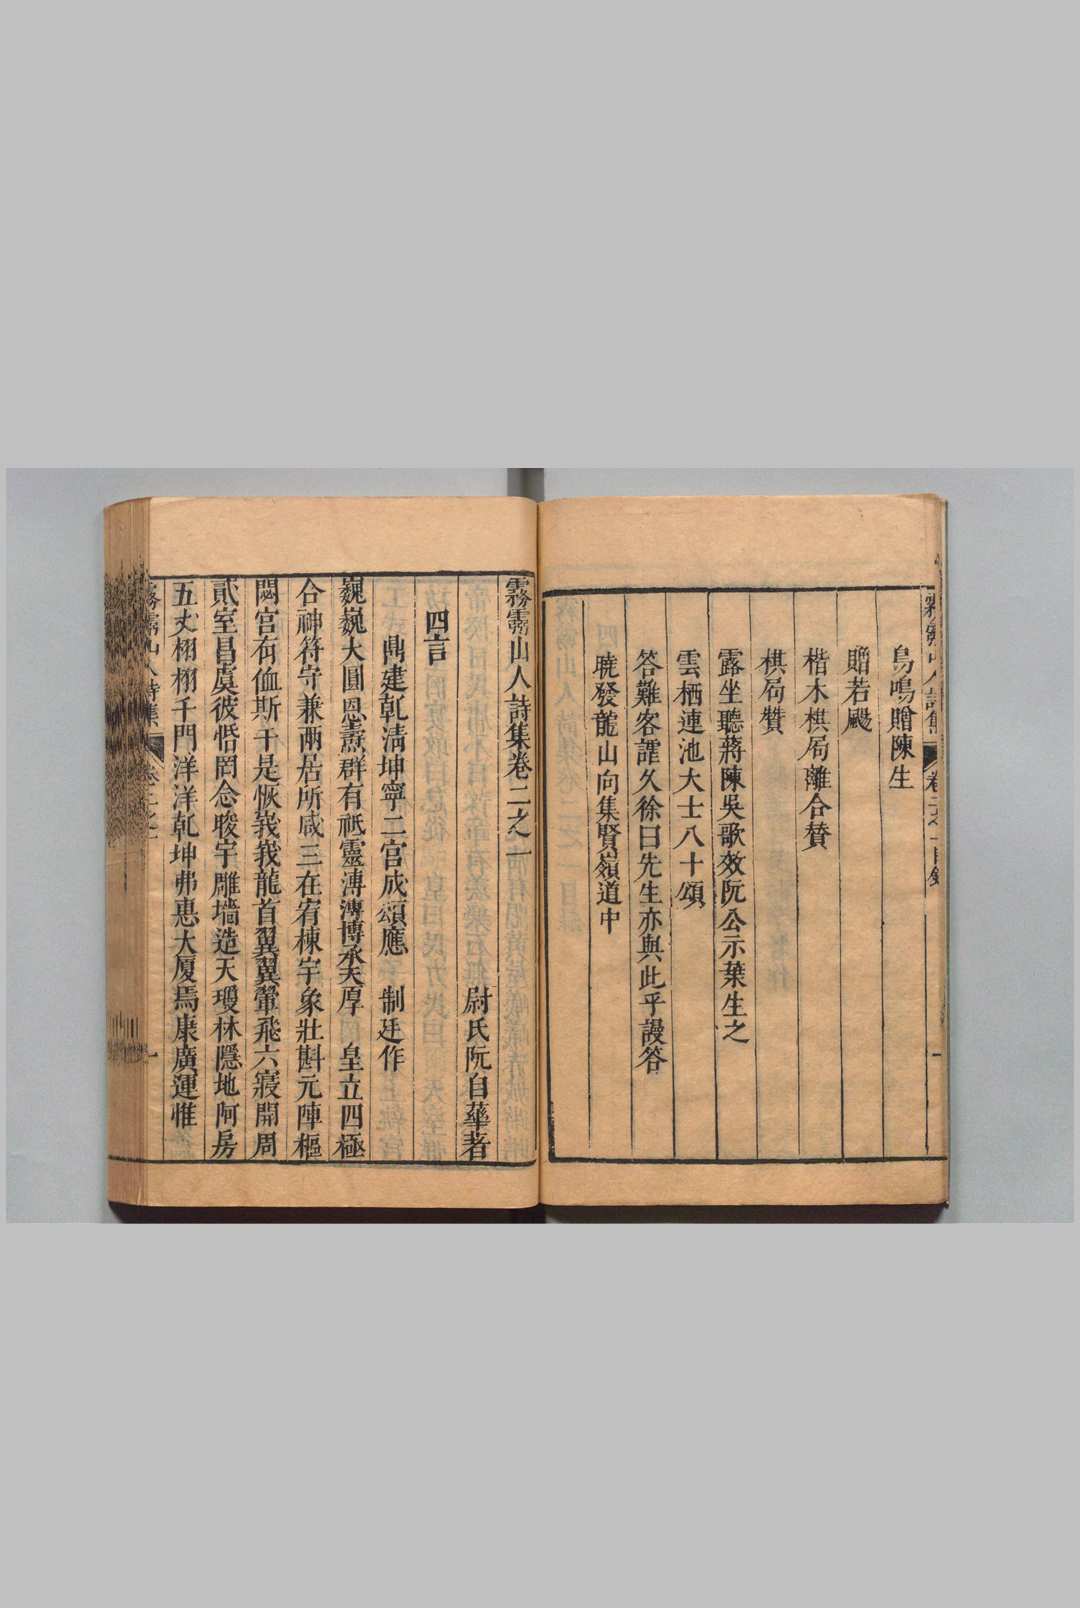 鳥鳴贈陳生
贈若颸
楷木棋局離合賛
棋局贊
露坐聽蔣陳吳歌效阮公示葉生之
雲栖連池大士八十頌
答難客譚久徐曰先生亦與此乎謾答
曉發龍山向集賢嶺道中
霧靈山人詩集卷二之一
尉氏阮自華著
四言
鼎建乾清坤寧二宮成頌應 制廷作
巍巍大圓恩燾群有祇靈溥溥博承天厚 皇立四極
合神符守兼兩居所咸三在宥棟宇象壯斟元陣樞
閟宮有侐斯干是恢峩峩龍首翼翼翬飛六寢開周
貳室昌虞彼恬罔念峻宇雕墻造天瓊林隱地阿房
五丈栩栩千門洋洋乾坤弗惠大厦焉康廣運惟